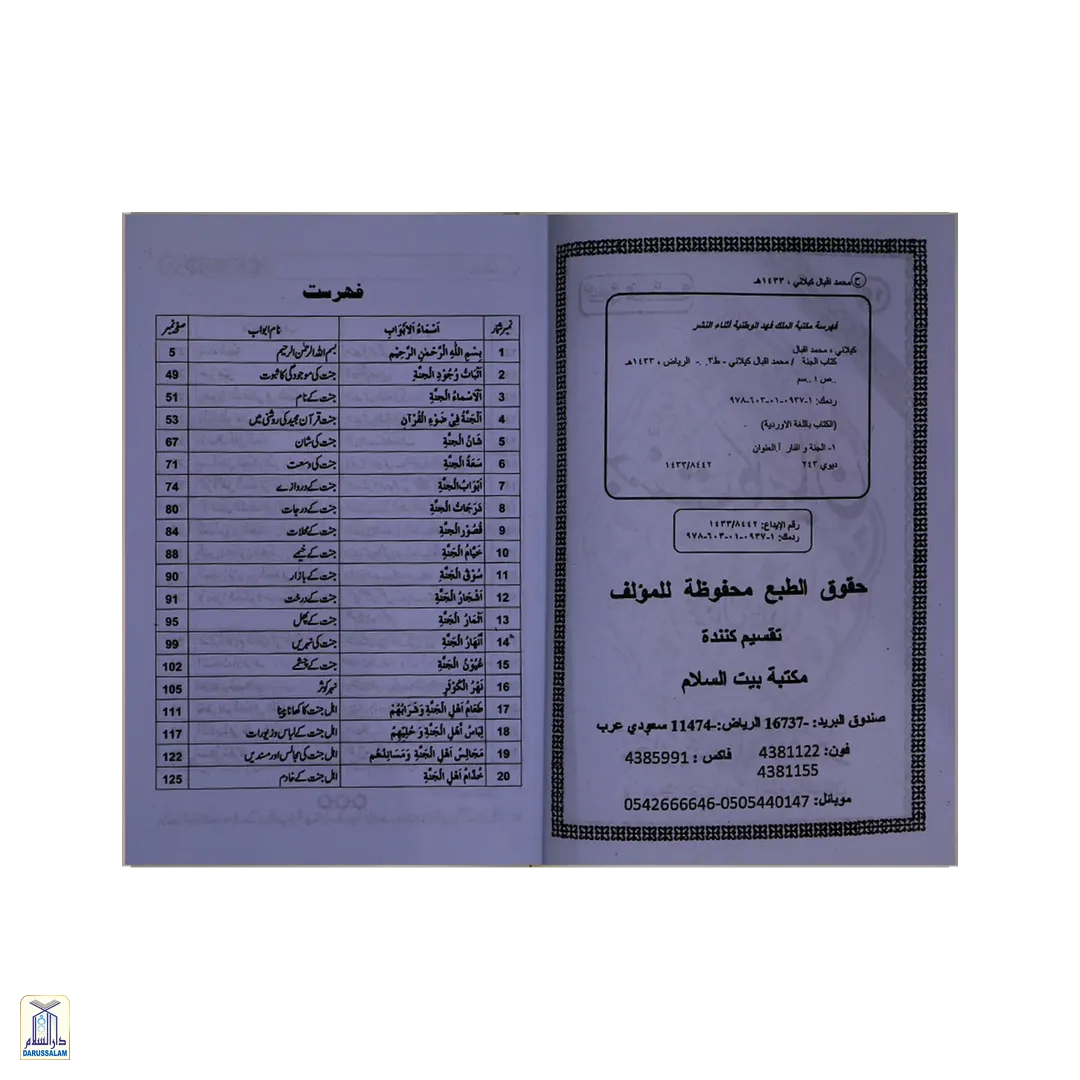 ح محمد اقبال كيلاني ، ١٤٣٣هـ
فهرسة مكتبة الملك فهد الوطنية أثناء النشر
كيلاني ، محمد اقبال
كتاب الجنة / محمد اقبال كيلاني - ط٣. .- الرياض ، ١٤٣٣هـ
..ص ؛ ..سم
ردمك: ١-٠٩٣٧-٠١-٦٠٣-٩٧٨
(الكتاب باللغة الاوردية)
١- الجنة و النار أ.العنوان
ديوي ٢٤٣ ١٤٣٣/٨٤٤٢
رقم الإيداع: ١٤٣٣/٨٤٤٢
ردمك: ١-٠٩٣٧-٠١-٦٠٣-٩٧٨
حقوق الطبع محفوظة للمؤلف
تقسيم كنندة
مكتبة بيت السلام
صندوق البريد: -16737 الرياض:-11474 سعودي عرب
فون: 4381122 فاكس : 4385991
4381155
موبائل: 0542666646-0505440147
فهرست
نمبر شمار اَسْمَاءُ الْاَبْوَابِ نام ابواب صفحہ نمبر
1 بِسْمِ اللّٰهِ الرَّحْمٰنِ الرَّحِيْمِ بسم اللہ الرحمٰن الرحیم 5
2 اِثْبَاتُ وُجُوْدِ الْجَنَّةِ جنت کی موجودگی کا ثبوت 49
3 اَلْاَسْمَاءُ الْجَنَّةِ جنت کے نام 51
4 اَلْجَنَّةُ فِيْ ضَوْءِ الْقُرْآنِ جنت قرآن مجید کی روشنی میں 53
5 شَانُ الْجَنَّةِ جنت کی شان 67
6 سَعَةُ الْجَنَّةِ جنت کی وسعت 71
7 اَبْوَابُ الْجَنَّةِ جنت کے دروازے 74
8 دَرَجَاتُ الْجَنَّةِ جنت کے درجات 80
9 قُصُوْرُ الْجَنَّةِ جنت کے محلات 84
10 خِيَامُ الْجَنَّةِ جنت کے خیمے 88
11 سُوْقُ الْجَنَّةِ جنت کے بازار 90
12 اَشْجَارُ الْجَنَّةِ جنت کے درخت 91
13 اَثْمَارُ الْجَنَّةِ جنت کے پھل 95
14 اَنْهَارُ الْجَنَّةِ جنت کی نہریں 99
15 عُيُوْنُ الْجَنَّةِ جنت کے چشمے 102
16 نَهْرُ الْكَوْثَرِ نہر کوثر 105
17 طَعَامُ اَهْلِ الْجَنَّةِ وَشَرَابُهُمْ اہل جنت کا کھانا پینا 111
18 لِبَاسُ اَهْلِ الْجَنَّةِ وَ حُلِيُّهِمْ اہل جنت کے لباس و زیورات 117
19 مَجَالِسُ اَهْلِ الْجَنَّةِ وَمَسَانِدُهُمْ اہل جنت کی مجالس اور مسندیں 122
20 خُدَّامُ اَهْلِ الْجَنَّةِ اہل جنت کے خادم 125
دار السلام
DARUSSALAM